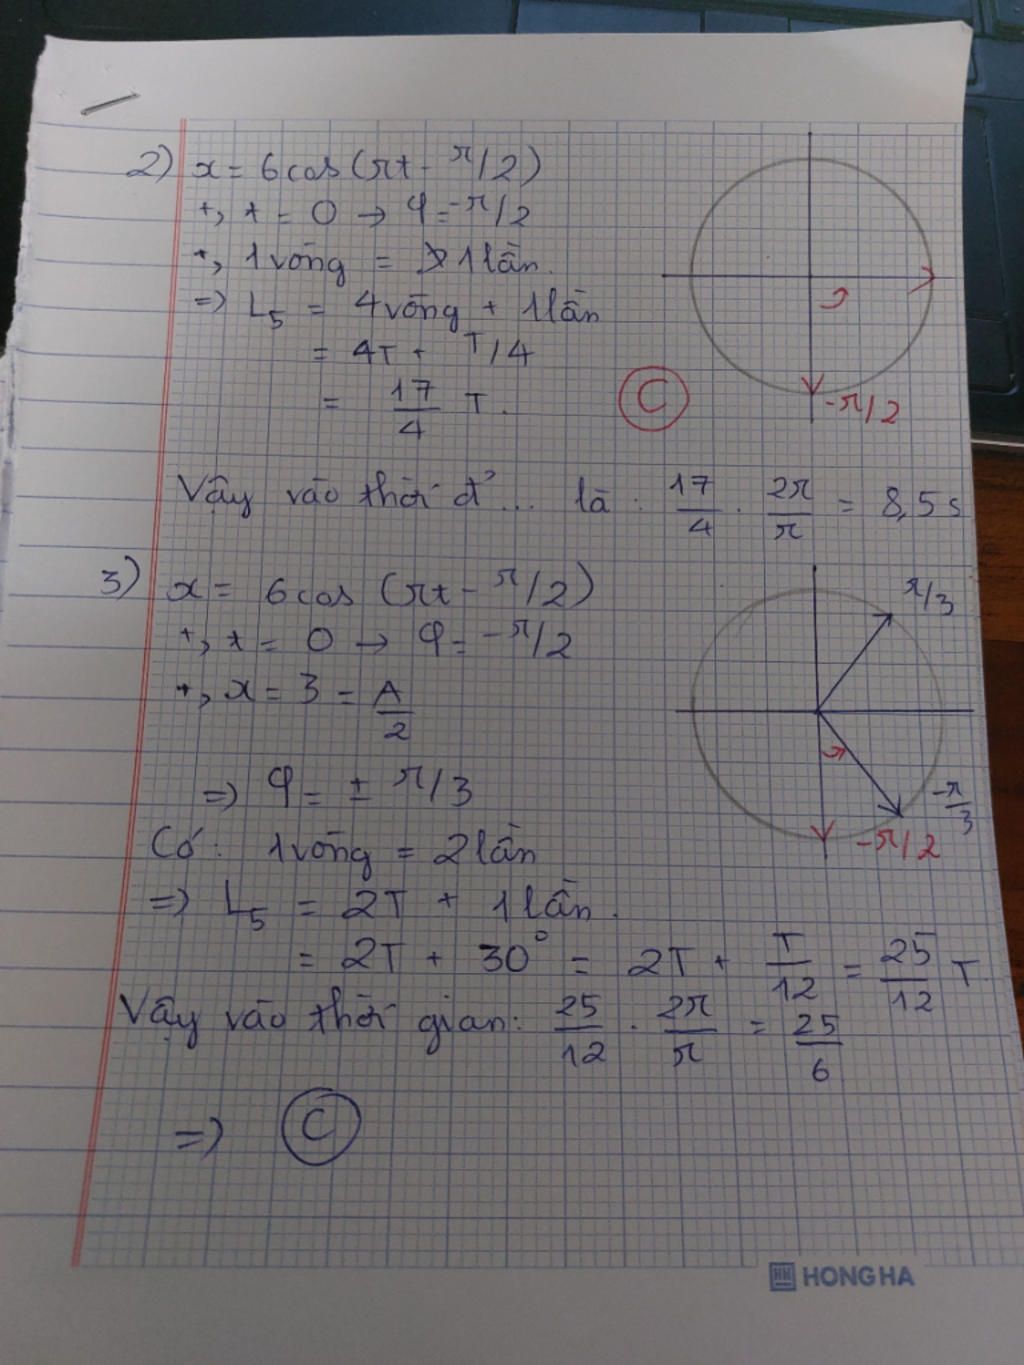 2) x = 6cos(πt - π/2)
+, t = 0 → φ = -π/2
+, 1 vòng = 1 lần.
=> L5 = 4 vòng + 1 lần
= 4T + T/4
= 17/4 T.
C
-π/2
Vậy vào thời đ² ... là : 17/4 . 2π/π = 8,5 s
3) x = 6cos (πt - π/2)
+, t = 0 → φ = -π/2
+, x = 3 = A/2
=> φ = ± π/3
π/3
-π/3
-π/2
Có: 1 vòng = 2 lần
=> L5 = 2T + 1 lần.
= 2T + 30° = 2T + T/12 = 25/12 T
Vậy vào thời gian: 25/12 . 2π/π = 25/6
=> C
HONG HA